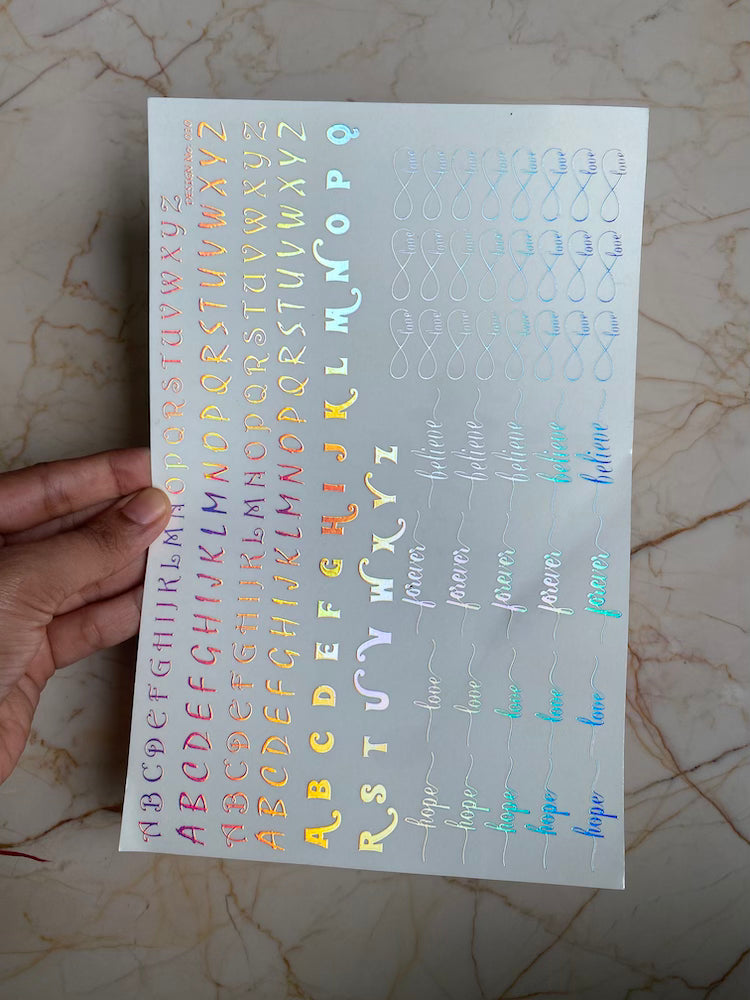 A B C D E F G H I J K L M N O P Q R S T U V W X Y Z
DESIGN No. 030
A B C D E F G H I J K L M N O P Q R S T U V W X Y Z
A B C D E F G H I J K L M N O P Q R S T U V W X Y Z
A B C D E F G H I J K L M N O P Q R S T U V W X Y Z
A B C D E F G H I J K L M N O P Q
R S T U V W X Y Z
hope love forever believe
hope love forever believe
hope love forever believe
hope love forever believe
hope love forever believe
love love love
love love love
love love love
love love love
love love love
love love love
love love love
love love love